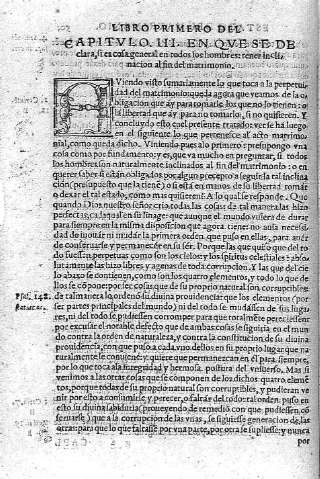 LIBRO PRIMERO DEL
CAPITVLO. III. EN QVE SE DE
clara, si es cosa general en todos los hombres: tener incli
nacion al fin del matrimonio.
AViendo visto sumariamente lo que toca a la perpetui
dad del matrimonio: queda agora que veamos de la o
bligacion que ay para tomarle los que no lo tienen: o
la libertad que ay para no tomarlo, si no quisieren. Y
concluydo esto en el presente tratado: verse ha luego
en el siguiente lo que pertenesce al acto matrimo
nial, como queda dicho. Viniendo pues a lo primero: presupongo vna
cosa como por fundamento: y es, que va mucho en preguntar, si todos
los hombres son naturalmente inclinados al fin del matrimonio: o en
querer saber si estan obligados por algun precepto a seguir la tal inclina
cion (presupuesto que la tiene) o si esta en manos de su libertad tomar
o dexar el tal estado, como mas quisieren. A lo qual se responde. Que
quando Dios nuestro señor crio todas las cosas de tal manera las hizo
perfectas, cada qual en su linage: que aunque el mundo vuiera de durar
para siempre en la misma disposicion que agora tiene: no auia necessi
dad de mouer ni mudar la primera orden, que puso en ellas, para auer
de conseruarse y permanecer en su ser. Porque las que quiso que del to
do fuessen perpetuas como son los cielos: y los spiritus celestiales: abso
lutamente las hizo libres, y agenas de toda corrupcion. Y las que del cie
lo abaxo se contienen, como son los quatro elementos, y todo lo que de
llos se compone: por ser cosas que de su proprio natural son corruptibles,
Psal. 148. de tal manera lo ordenó su diuina prouidencia: que los elementos (por
ser partes principales del mundo) ni del todo se mudassen de sus luga
res, ni del todo se pudiessen corromper: para que totalmente pereciessen
por excusar el notable defecto que de ambas cosas se siguiria en el mun
do contra la orden de naturaleza, y contra la constitucion de su diuina
prouidencia, con que puso a cada vno dellos en su proprio lugar que na
turalmente le conuiene: y quiere que permanezcan en el para siempre,
por lo que toca a la integridad y hermosa postura del vniuerso. Mas si
venimos a las otras cosas que se componen de los dichos quatro elemen
tos, porque todas de su proprio natural son corruptibles, y pudieran ve
nir por esto a consumirse y perecer, o faltar del todo: tal orden puso en
esto su diuina sabiduria (proueyendo de remedio con que pudiessen
) que a la corrupcion de las vnas, se siguiesse generacion de las
otras: para que lo que faltasse por vna parte, por otra se supliesse: y nunca
por